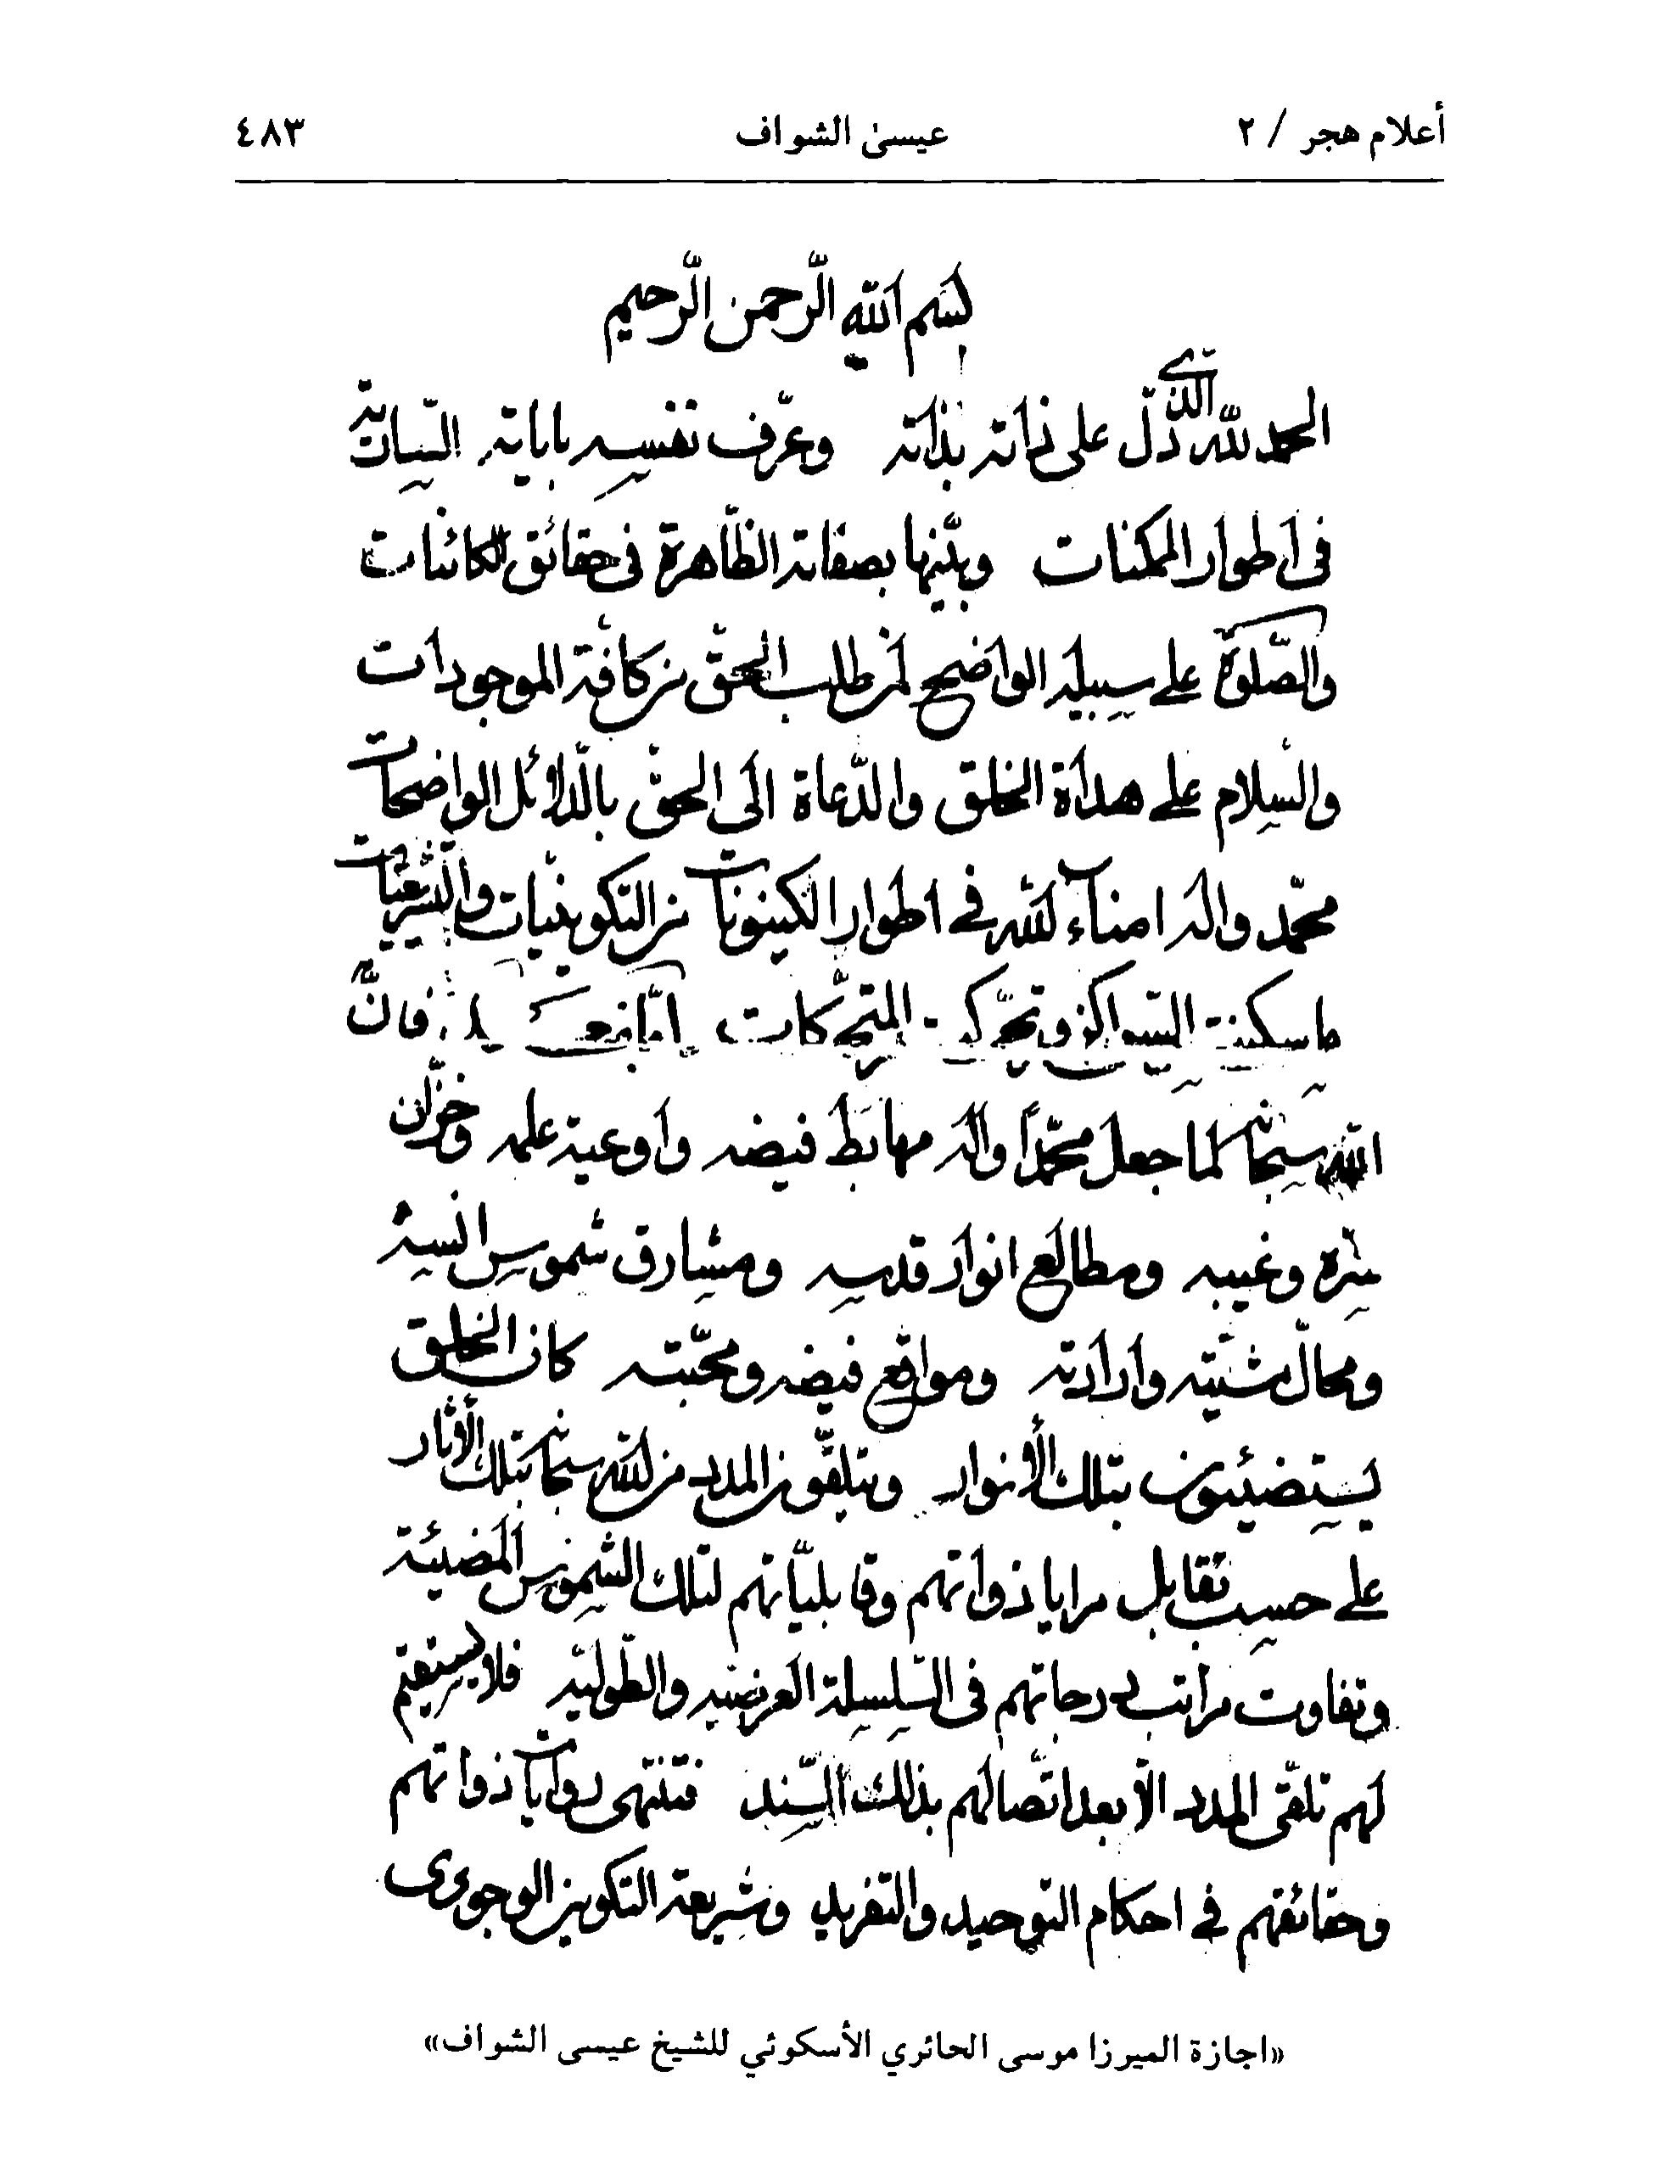 أعلام هجر / ٢
عيسىٰ الشواف
٤٨٣
بسم الله الرحمن الرحيم
الحمد لله الذي دلّ على ذاته بذاته وعرّف نفسه باياته
فى اطوار الممكنات وبيّنها بصفاته الظّاهرة فى حقائق الكائنات
والصّلوة على سبيله الواضح لمن طلب الحقّ من كافّة الموجودات
والسلام على هداة الخلق والدّعاة الى الحقّ بالدّلائل الواضحات
محمّد واله امناء الله فى اطوار الكينونات من التكوينيّات والتشريعيّات
ما سكنت السّواكن وتحرّكت المتحرّكات امّا بعد فانّ
الله سبحانه لما جعل محمّداً واله مهابط فيضه واوعية علمه وخزّان
سرّه وغيبه ومطالع انوار قدسه ومشارق شموس انسه
ومحالّ مشيّته وارادته ومواقع فيضه ومحبّته كان الخلق
يستضيئون بتلك الأنوار ويتلقّون المدد من الله سبحانه بتلك الأثار
على حسب تقابل مرايا ذواتهم وقابليّاتهم لتلك الشموس المضيئة
وتفاوت مراتب درجاتهم فى السّلسلة العرضيّه والطّوليّه فلا يستقيم
لهم تلقّى المدد الّا بعد اتّصالهم بذلك السّند فتنتهى روايات ذواتهم
وحقائقهم فى احكام التوحيد والتفريد وشريعة التكوين الوجودى
«اجازة الميرزا موسى الحائري الأسكوئي للشيخ عيسى الشواف»